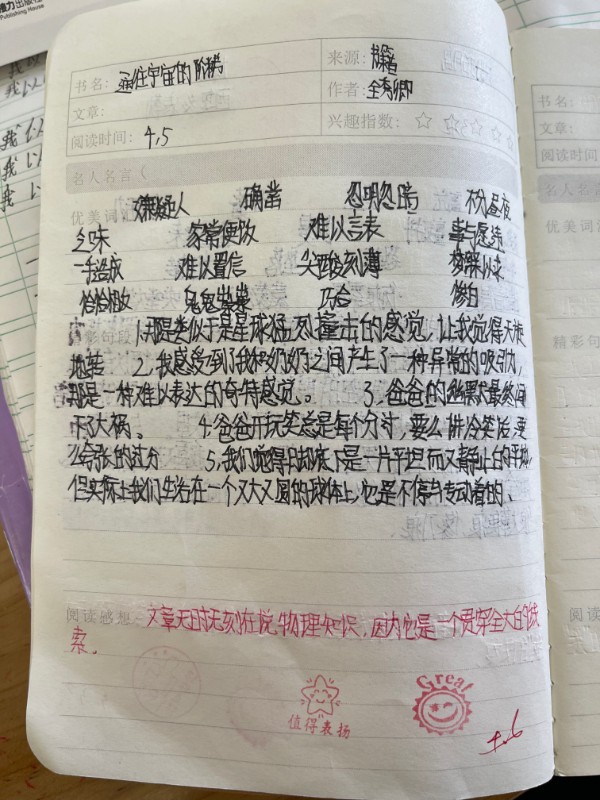 Publishing House
书名: 通往宇宙的阶梯
来源: 书籍
文章:
作者: 全秀卿
阅读时间: 4,5
兴趣指数: ☆ ☆ ☆ ☆ ☆
名人名言(
嫌疑人 确凿 忽明忽暗
优美词
家常便饭 难以言表 事与愿违
一手造成 难以置信 尖酸刻薄 梦寐以求
恰恰相反 鬼鬼祟祟 巧合 惨白
1.那是类似于星球猛烈撞击的感觉,让我觉得天旋
地转 2.我感受到了我和奶奶之间产生了一种异常的吸引力,
那是一种难以表达的奇特感觉。 3.爸爸的幽默最终闯
下了大祸。 4.爸爸开玩笑总是每个分寸,要么讲冷笑话,要
么夸张的过分 5,我们觉得脚底下是一片平坦而又静止的平地,
但实际上我们生活在一个又大又圆的球体上,它是不停歇转动着的。
阅读感想: 文章无时无刻在说物理知识,因为它是一个贯穿全文的线
索。
值得表扬
Great
4.6
书名:
文章:
阅读时间
名人名言
优美词
精彩句
阅读